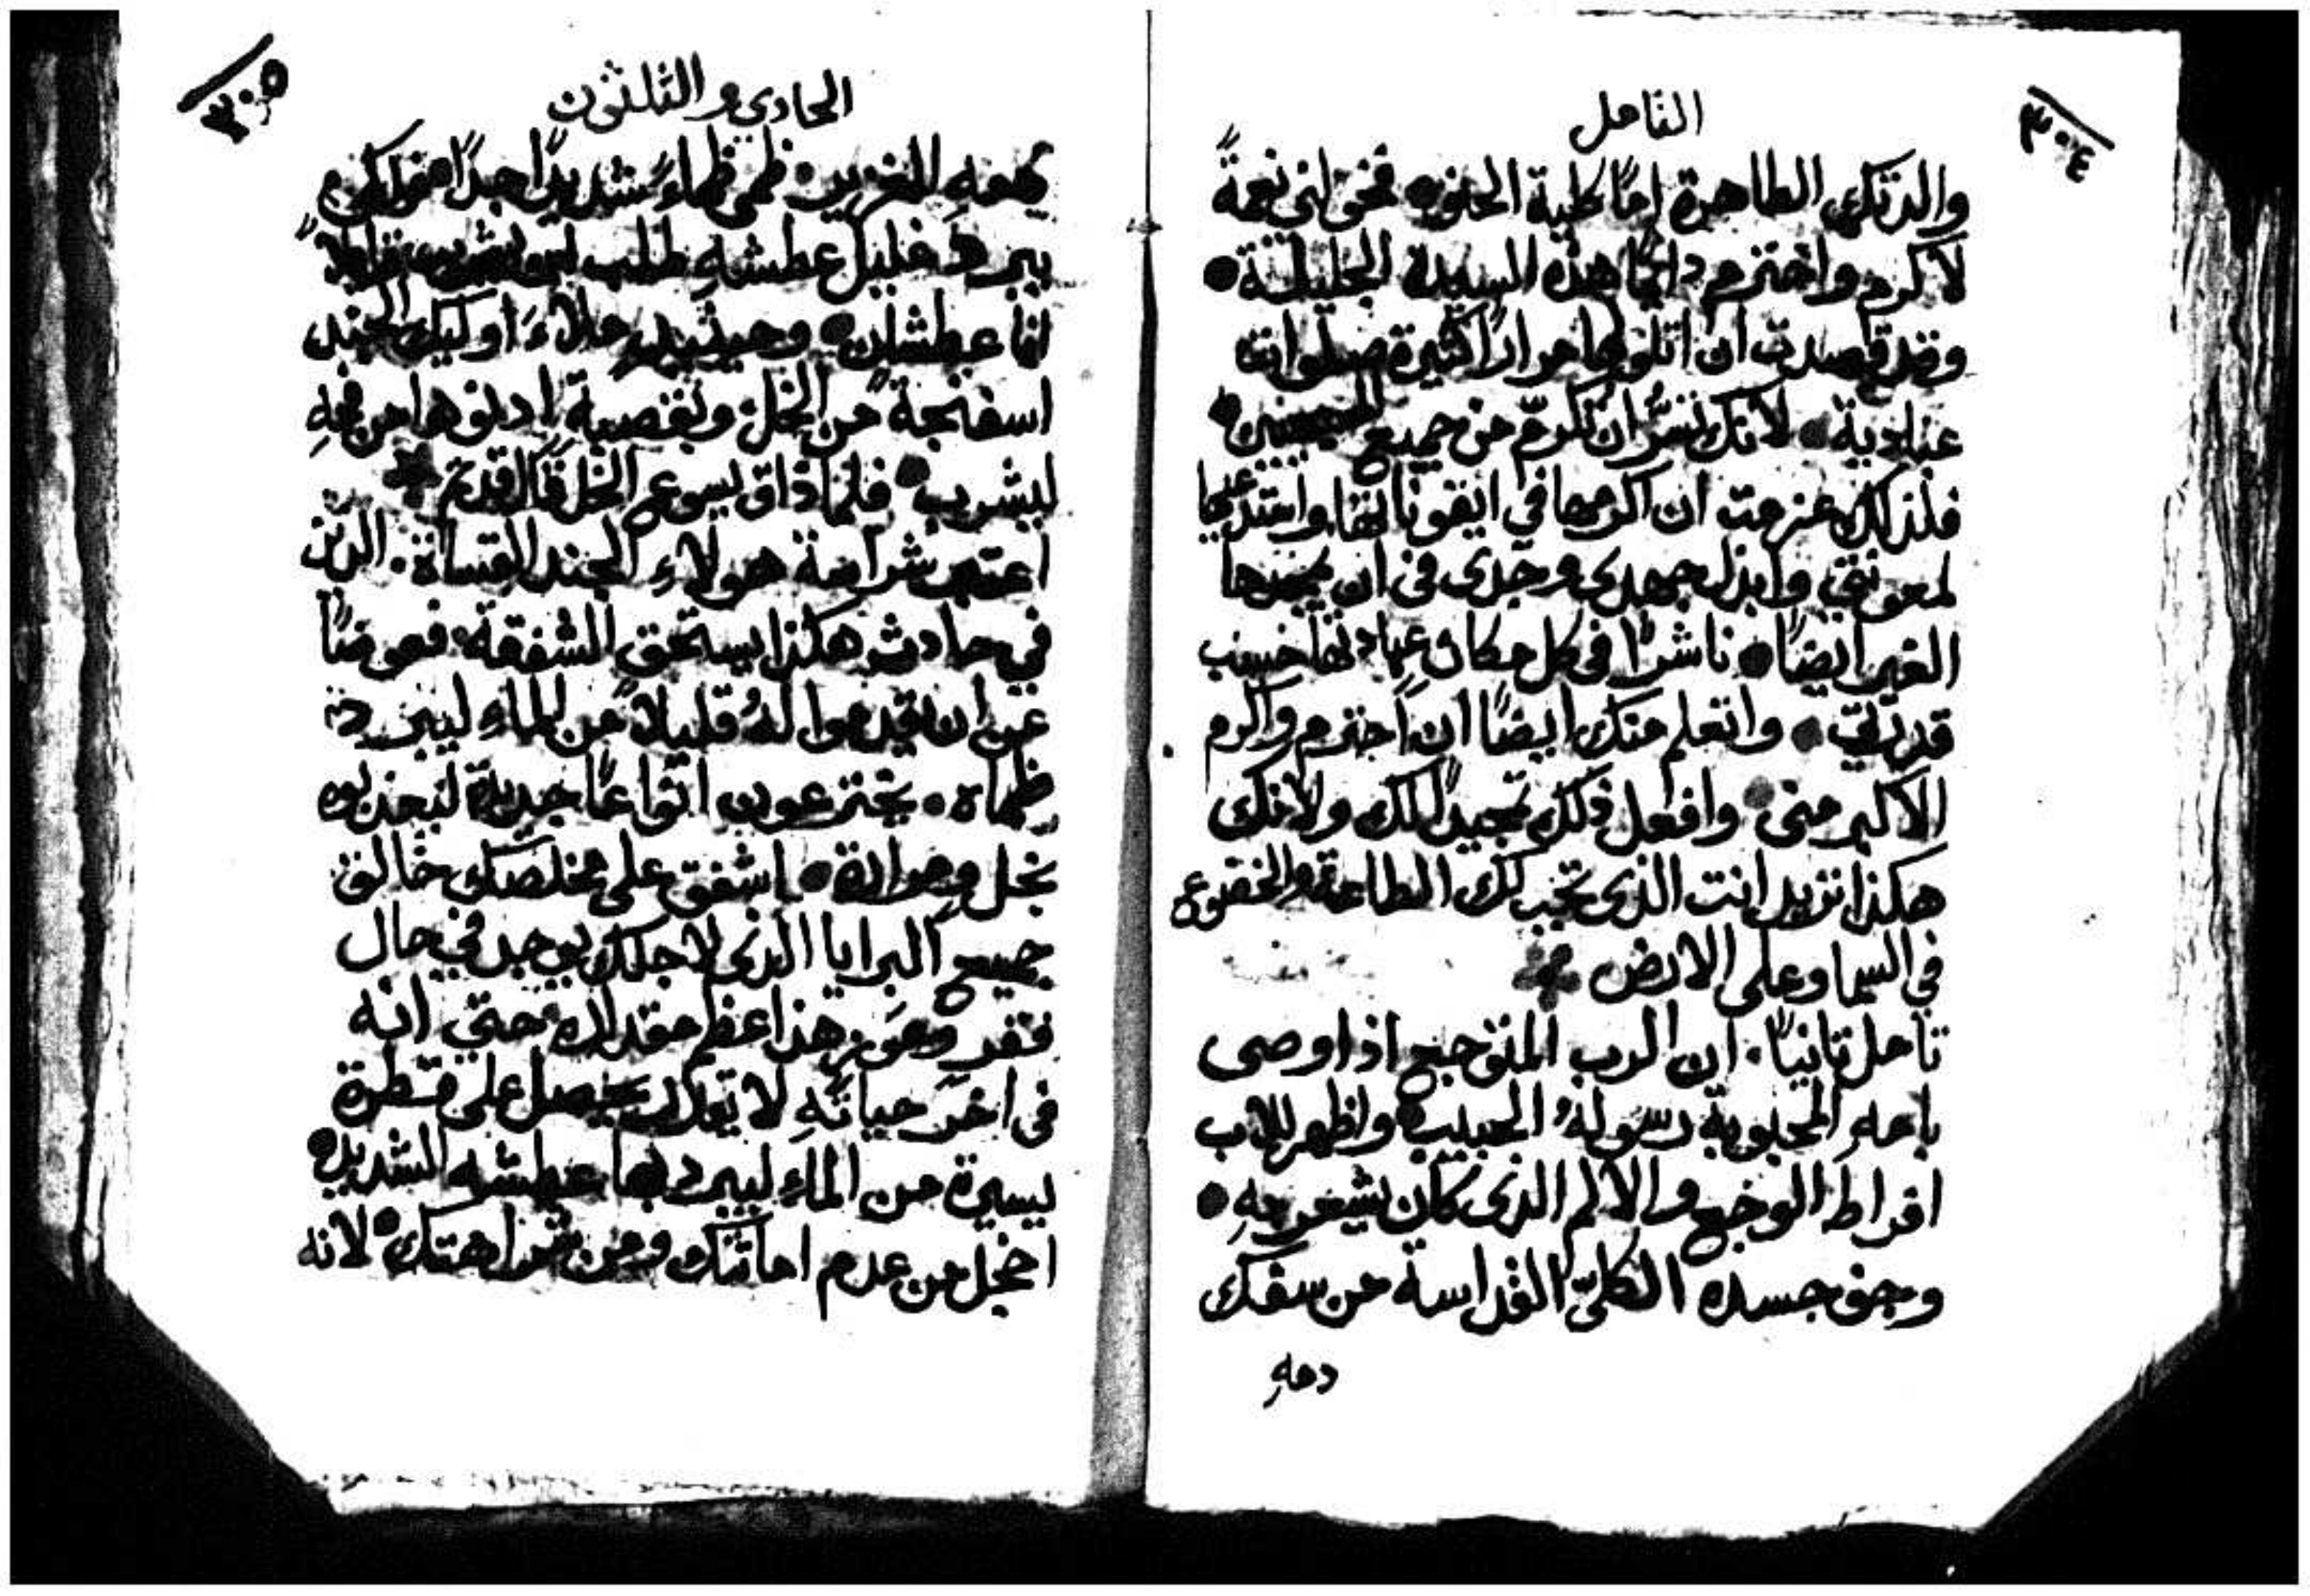 ٣٠٤
التامل
والدتك الطاهرة امًا كلية الحنو. فخولني نعمةً
لاكرم واحترم دايمًا هذه السيدة الجليلة.
وقد قصدت ان اتلو لها مرارًا كثيرة صلوات
عبادية. لانك تسرُّ ان تكرّم من جميع
فلذلك عزمت ان اكرمها في ايقوناتها واستدعيها
لمعونتي وابذل جهدي وجدي في ان يمجدها
الغير ايضًا. ناشرًا في كل مكان عبادتها حسب
قدرتي. واتعلم منك ايضًا ان احترم واكرم
الاكبر مني. وافعل ذلك تمجيدًا لك ولانك
هكذا تريد انت الذي تجب لك الطاعة والخضوع
في السما وعلى الارض
تامل ثانيًا. ان الرب المتوجع اذ اوصى
بامهِ المحبوبة رسولهُ الحبيب. واظهر للاب
افراط الوجع والالم الذي كان يشعر بهِ.
وجف جسده الكليّ القداسة من سفك
دمهِ
٣٠٥
الحادي والثلثون
دمهِ الغزير. ظمى ظماءً شديدًا جدًا
يبرد غليل عطشهِ طلب قايلاً
انا عطشان. وحينيذٍ ملاءَ اوليك الجند
اسفنجة من الخل وبقصبة ادنوها من فمهِ
ليشرب. فلما ذاق يسوع الخل قال قد تم
اعتبر شراسة هولاءِ الجند القساة. الذين
في حادث هكذا يستحق الشفقة. فعوضًا
عن ان يقدموا لهُ قليلاً من الماء ليبرد
ظماه. يخترعون انواعًا جديدة ليعذبوه
بخل ومرارة. اشفق على مخلصك خالق
جميع البرايا الذي لاجلك يوجد في حال
فقر وعوز هذا عظم مقداره حتى انه
في اخر حياتهِ لا يحصل على قطرة
يسيرة من الماء ليبرد بها عطشه الشديد.
اخجل من عدم اماتتك ومن شراهتك. لانه